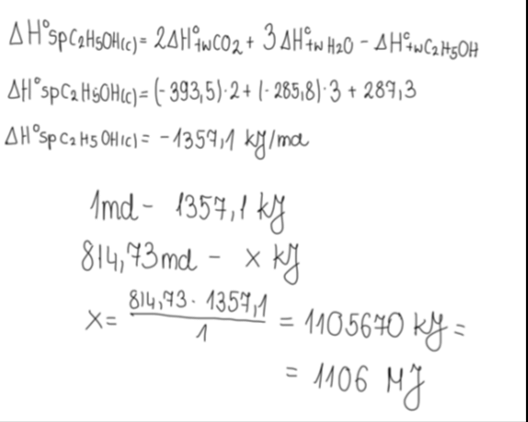 ΔH°spC₂H₅OH(c) = 2ΔH°twCO₂ + 3ΔH°twH₂O − ΔH°twC₂H₅OH
ΔH°spC₂H₅OH(c) = (-393,5)·2 + (-285,8)·3 + 287,3
ΔH°spC₂H₅OH(c) = -1357,1 kJ/mol
1mol - 1357,1 kJ
814,73mol - x kJ
x = 814,73 · 1357,1 / 1 = 1105670 kJ =
= 1106 MJ